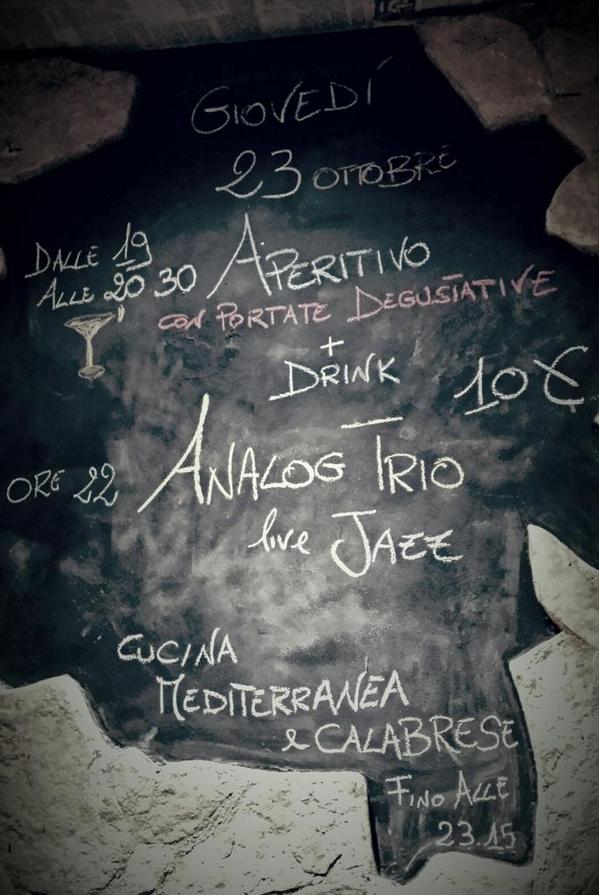 GIOVEDÍ
23 OTTOBRE
DALLE 19
ALLE 20.30
APERITIVO
CON PORTATE DEGUSTATIVE
+
DRINK
10 €
ORE 22
ANALOG TRIO
live JAZZ
CUCINA
MEDITERRANEA
e CALABRESE
FINO ALLE
23.15